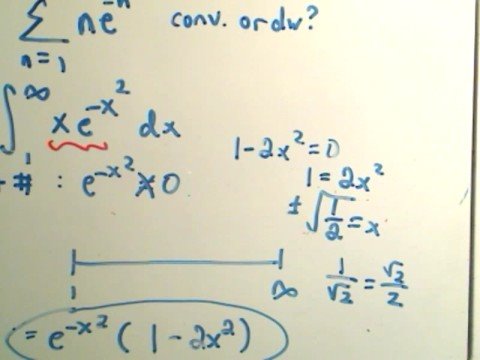 ∑ n=1 ne^-n conv. or div?
∫ 1 ∞ xe^-x² dx
1-2x²=0
1=2x²
+# : e^-x² ≠ 0
±√(1/2)=x
1 ∞
1/√2 = √2/2
= e^-x² (1-2x²)